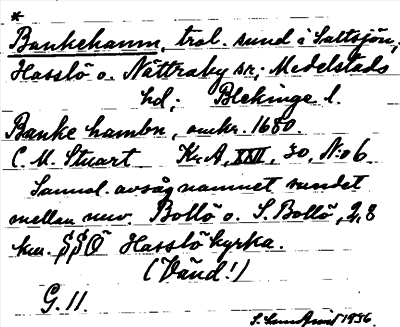 *
Bankehamn, trol. sund i Saltsjön,
Hasslö o. Nättraby sr; Medelstads
hd; Blekinge l.
Banke hambn, omkr. 1680.
C. M. Stuart Kr. A, XXII, 30, No 6.
Sannol. avsåg namnet sundet
mellan nuv. Bollö o. S. Bollö, 2,8
km. SSO Hasslö kyrka.
(Vänd!)
G. 11.
1936